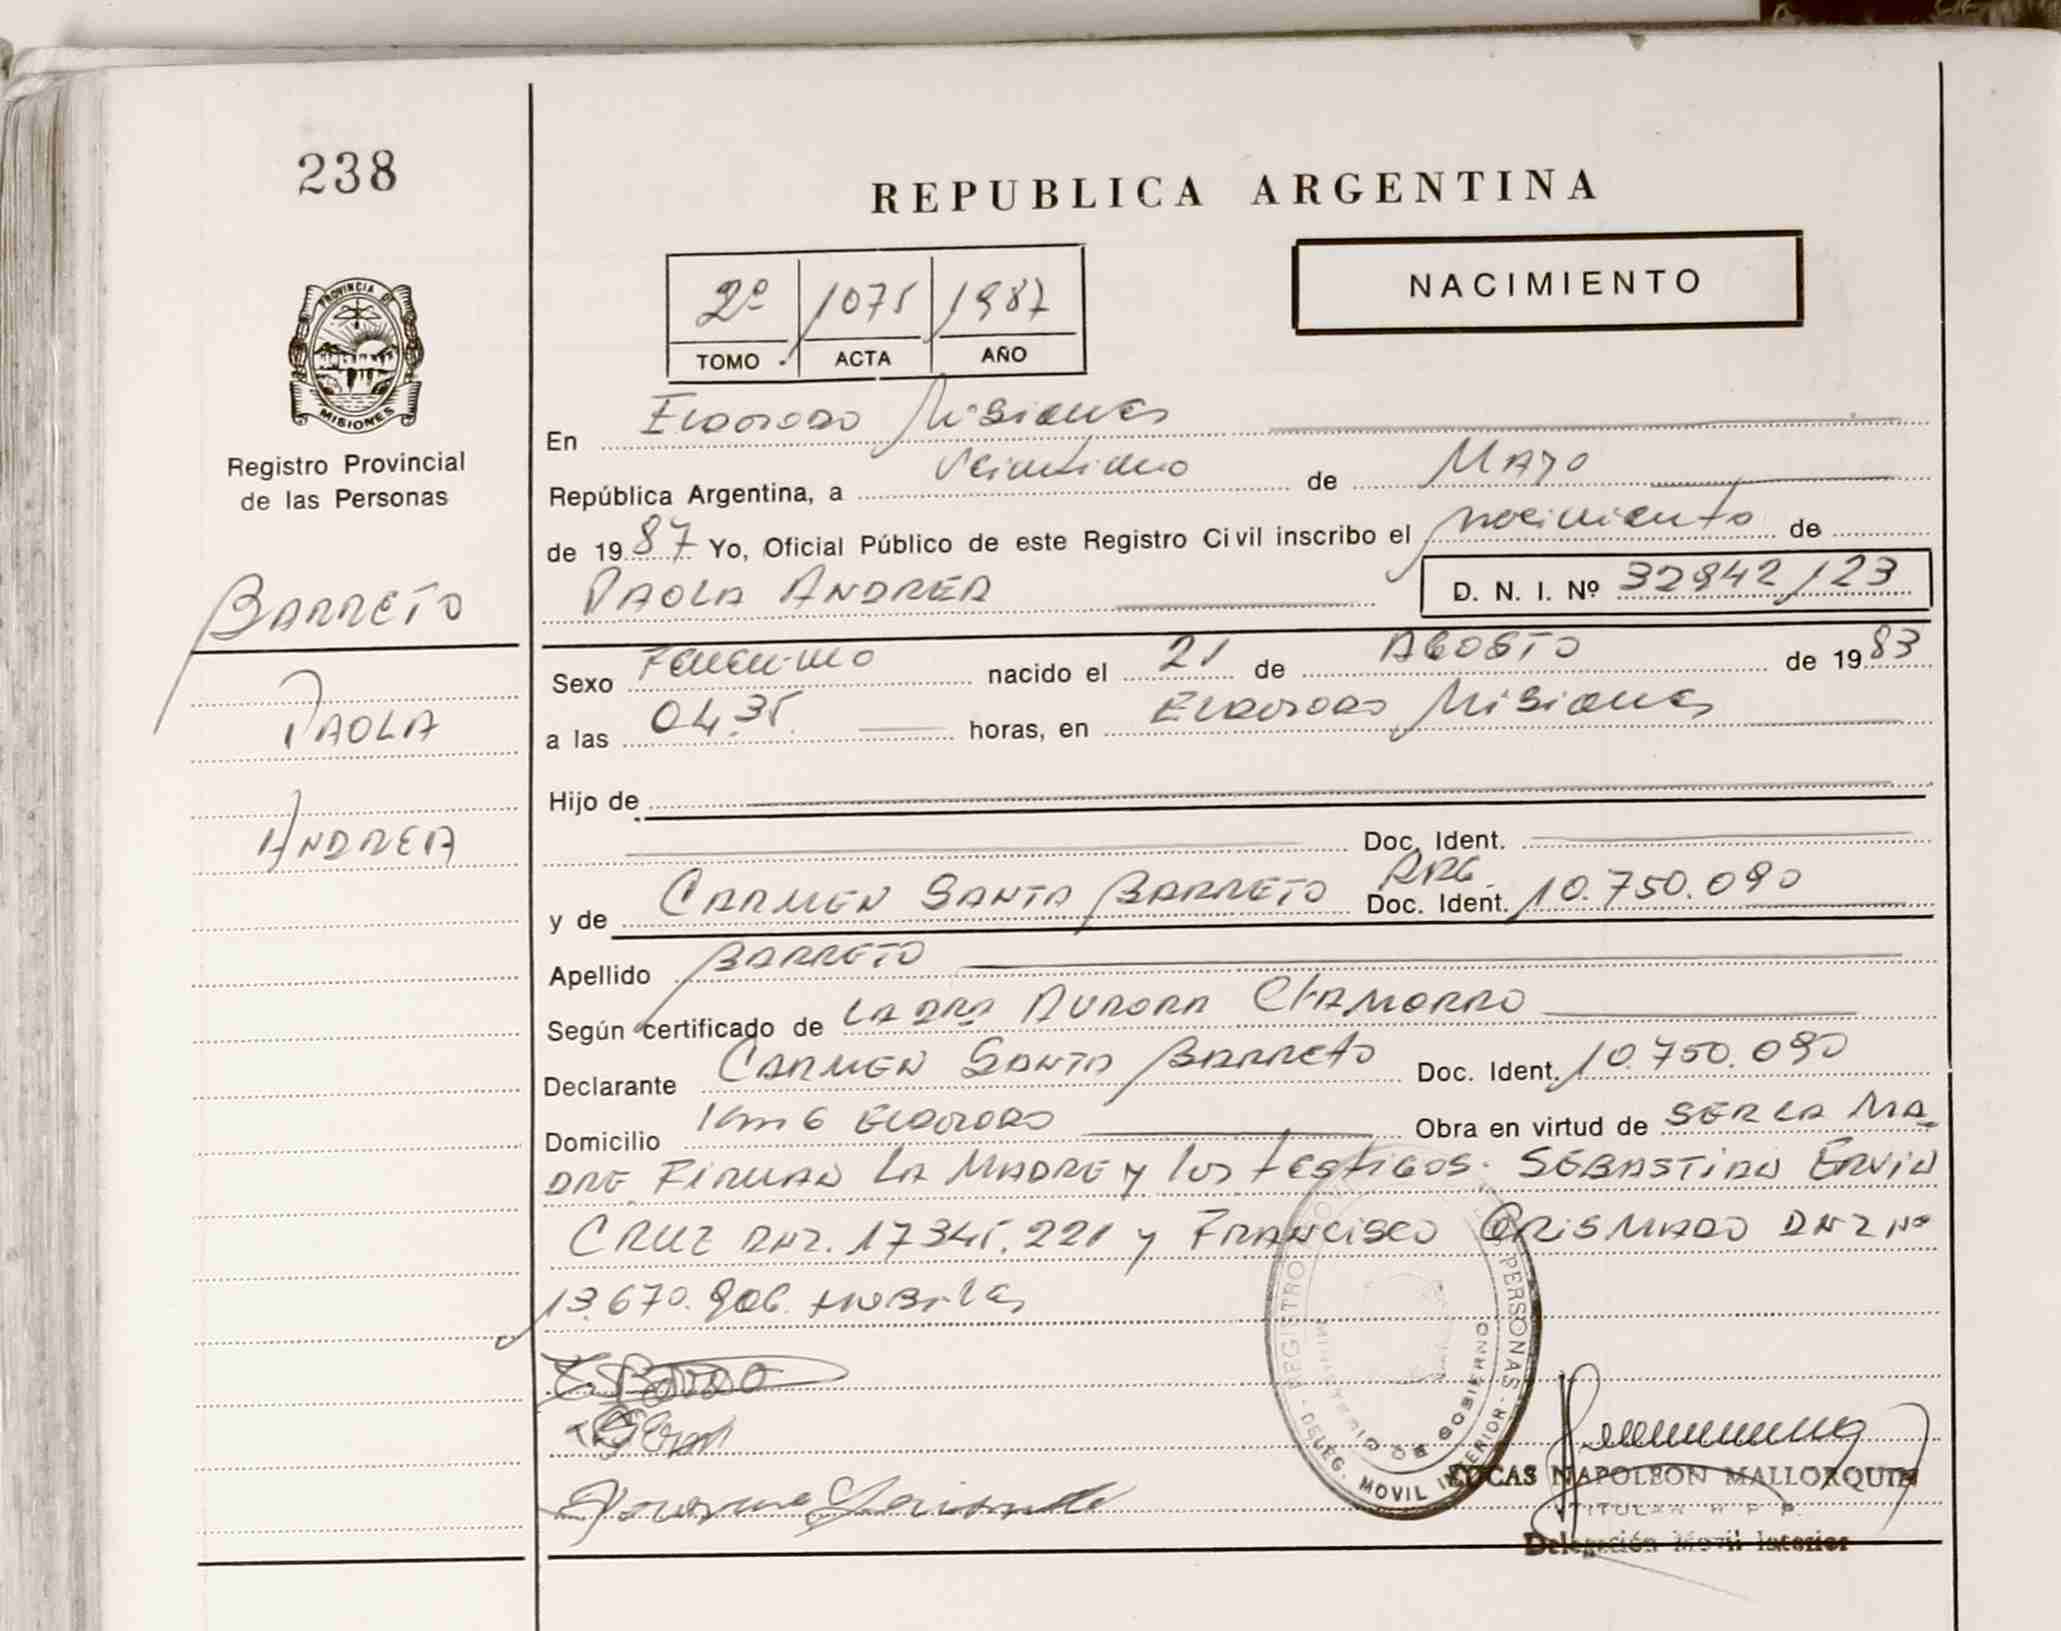 238
REPUBLICA ARGENTINA
NACIMIENTO
2º 1075 1987
TOMO ACTA AÑO
PROVINCIA DE
MISIONES
Registro Provincial
de las Personas
En Eldorado Misiones
República Argentina, a veintiuno de MAYO
de 1987 Yo, Oficial Público de este Registro Civil inscribo el nacimiento de
PAOLA ANDREA D. N. I. Nº 32942123
BARRETO
PAOLA
ANDREA
Sexo Femenino nacido el 21 de AGOSTO de 1983
a las 04.35. horas, en Eldorado Misiones
Hijo de
Doc. Ident.
ARG.
y de CARMEN SANTA BARRETO Doc. Ident. 10.750.090
Apellido BARRETO
Según certificado de LA DRA AURORA CHAMORRO
Declarante CARMEN SANTA BARRETO Doc. Ident. 10.750.090
Domicilio Km 6 ELDORADO Obra en virtud de SER LA MA
DRE FIRMAN LA MADRE y los testigos. SEBASTIAN ERVIN
CRUZ DNI. 17345.221 y FRANCISCO CRISMADO DNI Nº
13.670.906. HABILES
REGISTRO PERSONAS
DELEG. MOVIL INTERIOR
MINISTERIO DE GOBIERNO
LUCAS NAPOLEON MALLORQUIN
TITULAR
Delegación Movil Interior